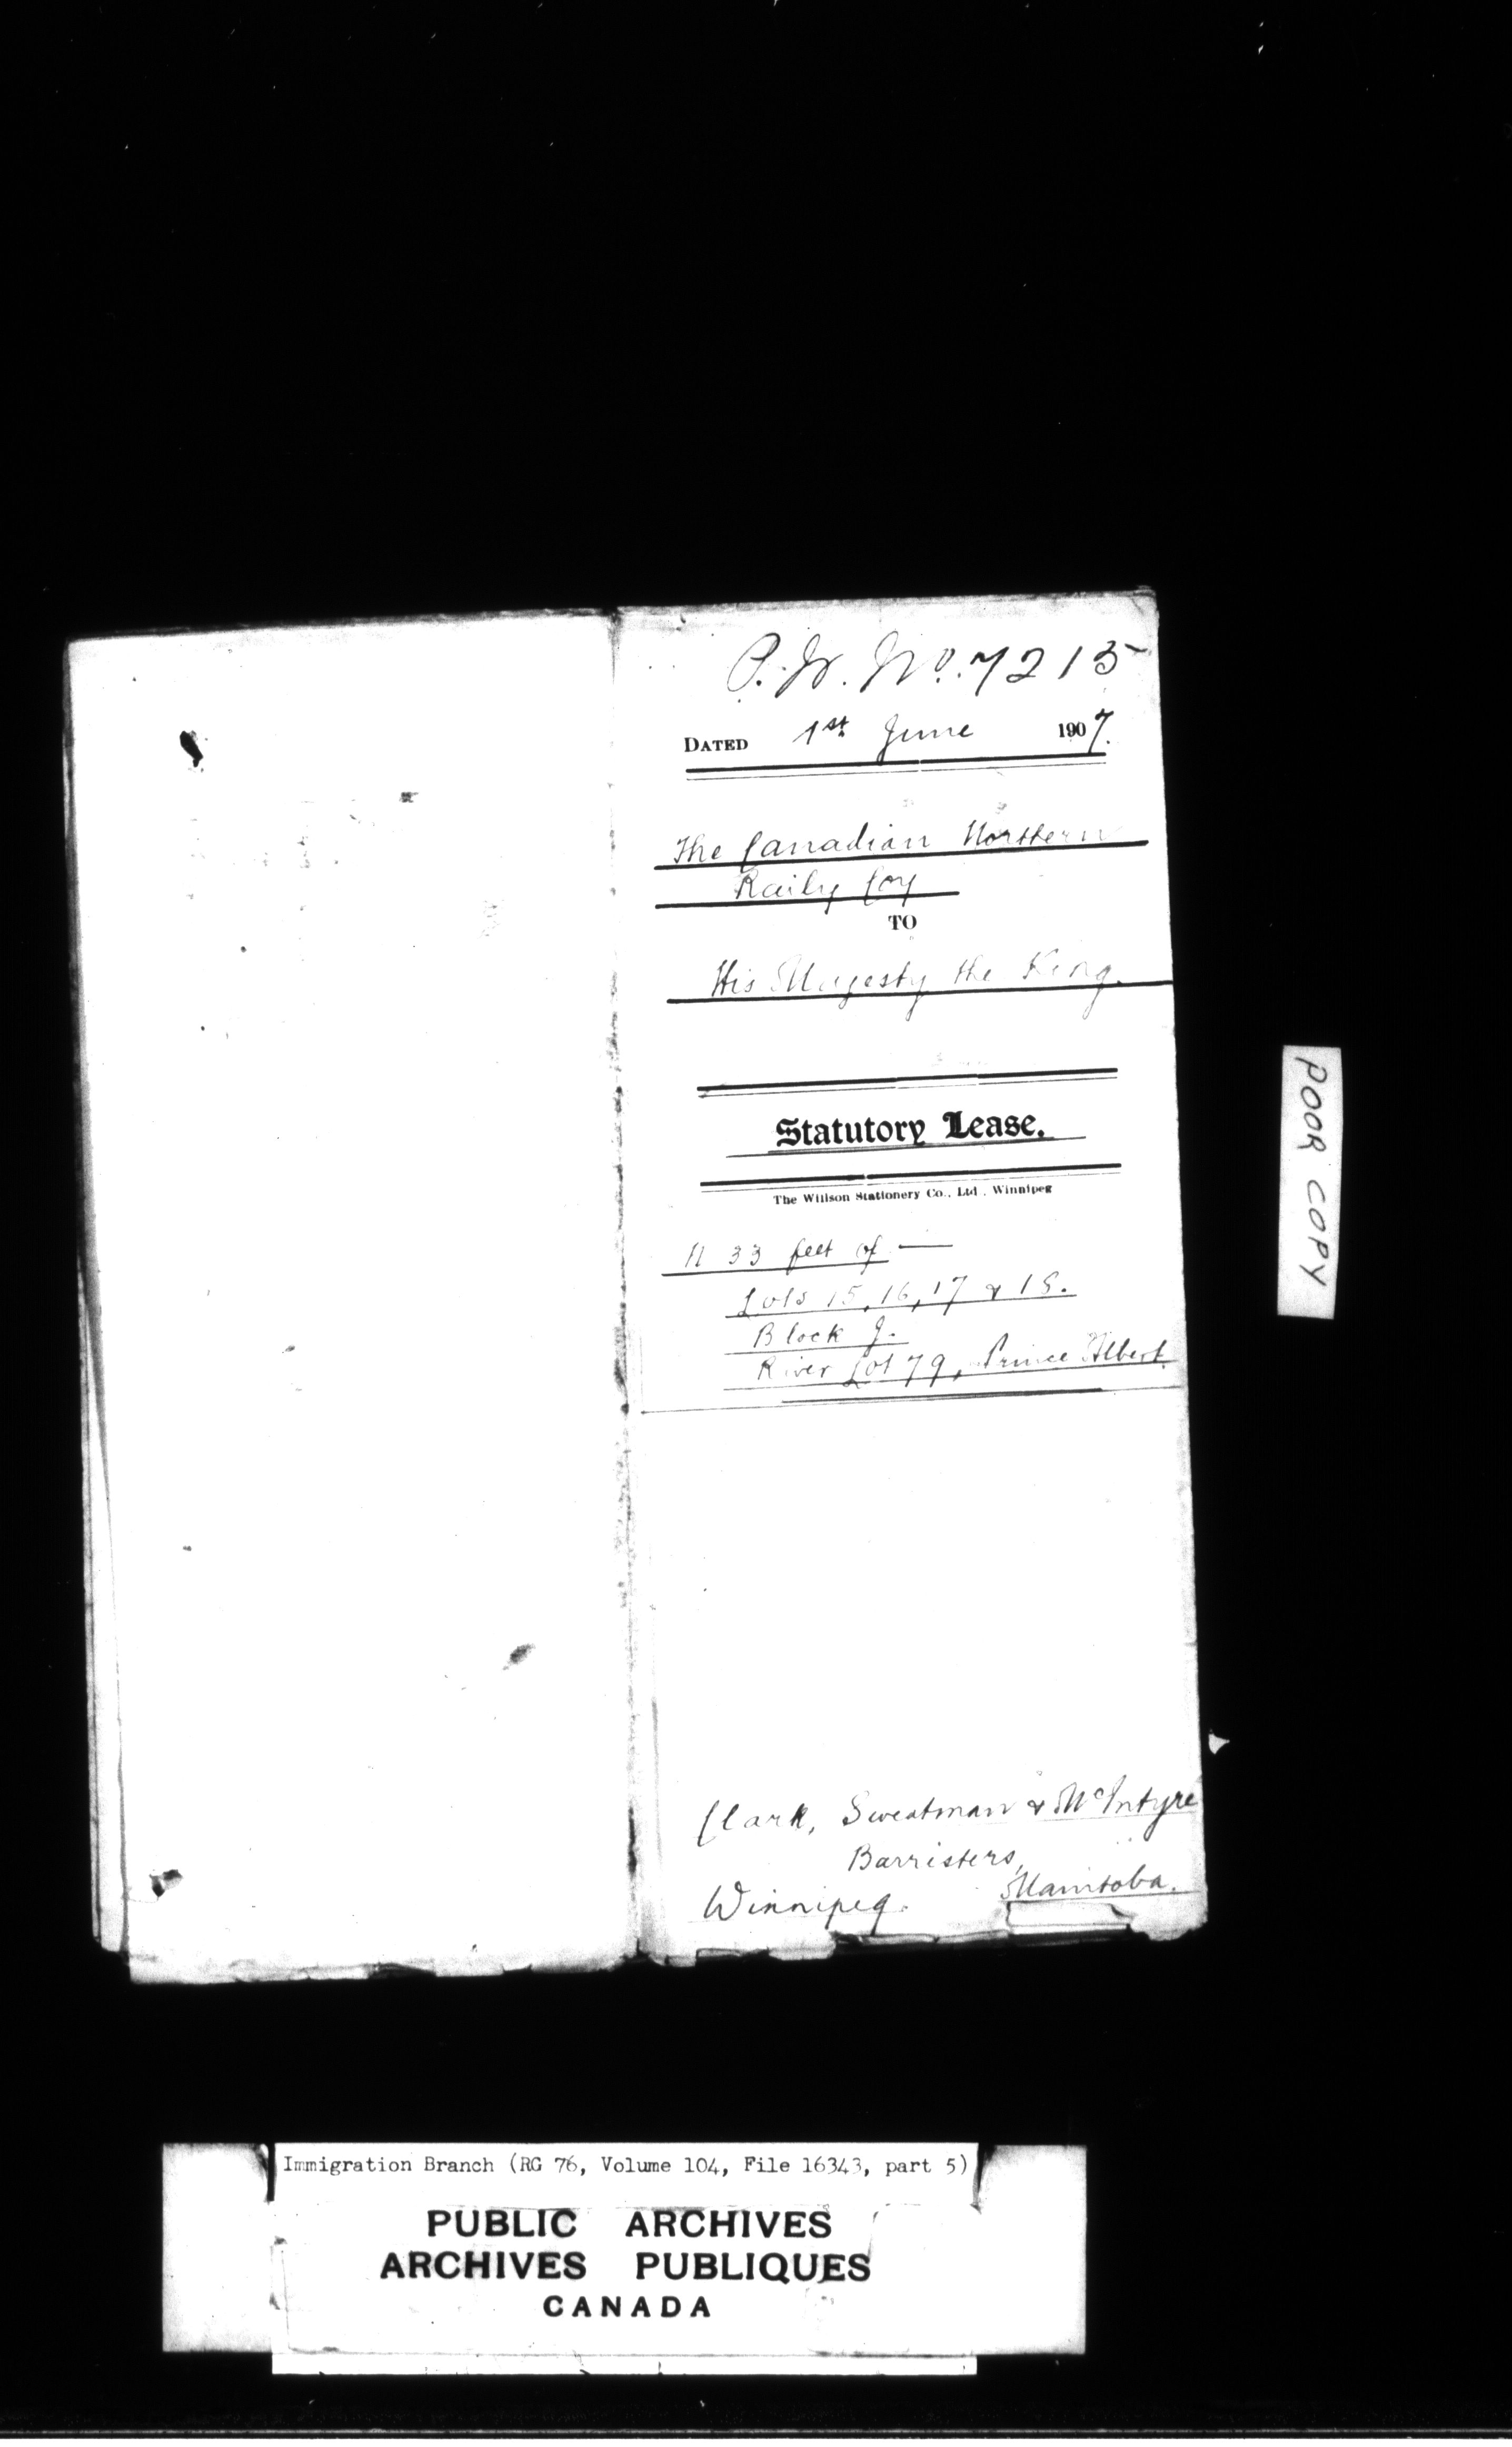 P.W. No. 7215
DATED 1st June 1907.
The Canadian Northern
Raily Coy
TO
His Majesty the King.
Statutory Lease.
The Willson Stationery Co., Ltd., Winnipeg
N 33 feet of —
Lots 15, 16, 17 & 18.
Block J.
River Lot 79, Prince Albert.
Clark, Sweatman & McIntyre
Barristers,
Winnipeg. Manitoba.
POOR COPY
Immigration Branch (RG 76, Volume 104, File 16343, part 5)
PUBLIC ARCHIVES
ARCHIVES PUBLIQUES
CANADA